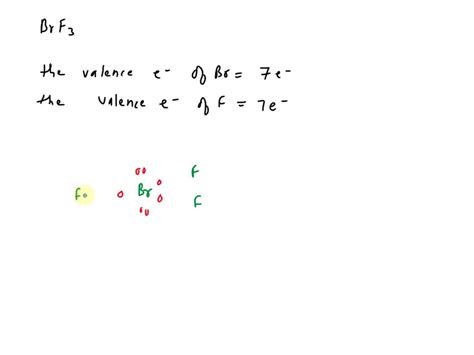 BrF3
the valence e- of Br = 7e-
the valence e- of F = 7e-
F
F Br
F